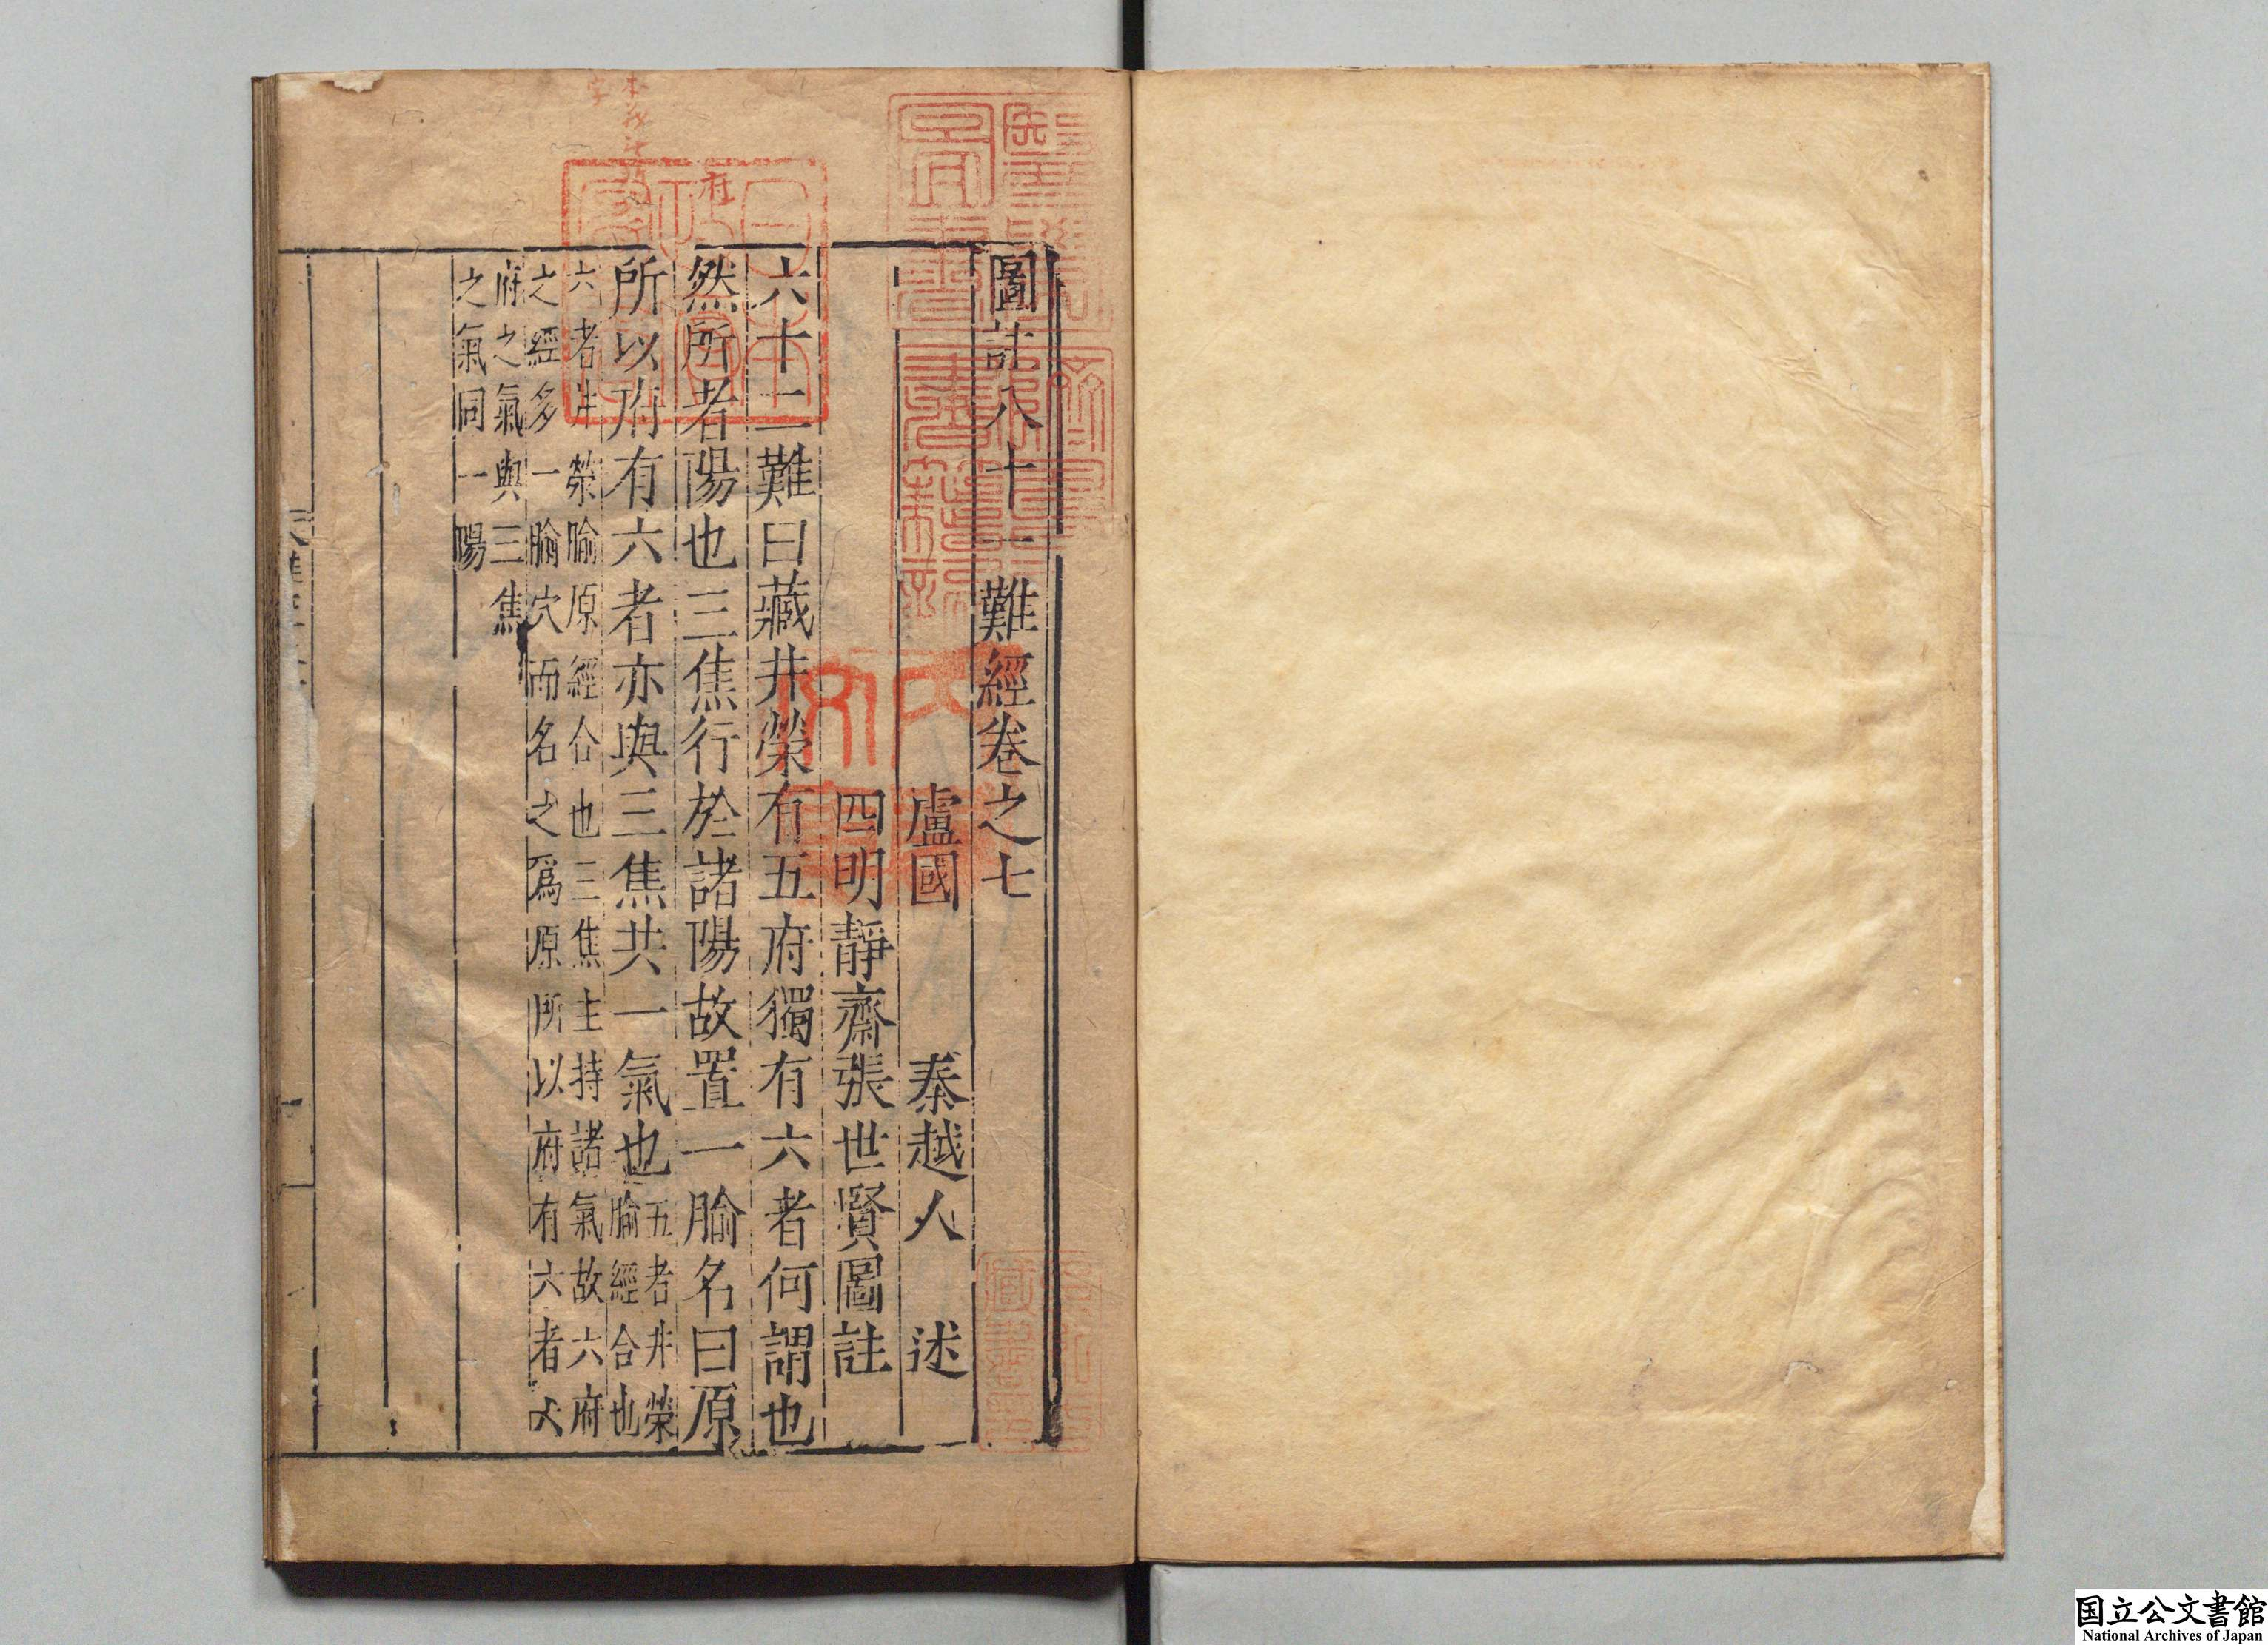 圖註八十一難經卷之七
盧國　秦越人　述
四明靜齋張世賢圖註
六十二難曰藏井榮有五府獨有六者何謂也
然所者陽也三焦行於諸陽故置一腧名曰原
所以府有六者亦與三焦共一氣也五者井榮
腧經合也
六者井榮腧原經合也三焦主持諸氣故六府
之經多一腧穴而名之爲原所以府有六者以
府之氣與三焦
之氣同一陽
府
日本
国立公文書館
National Archives of Japan